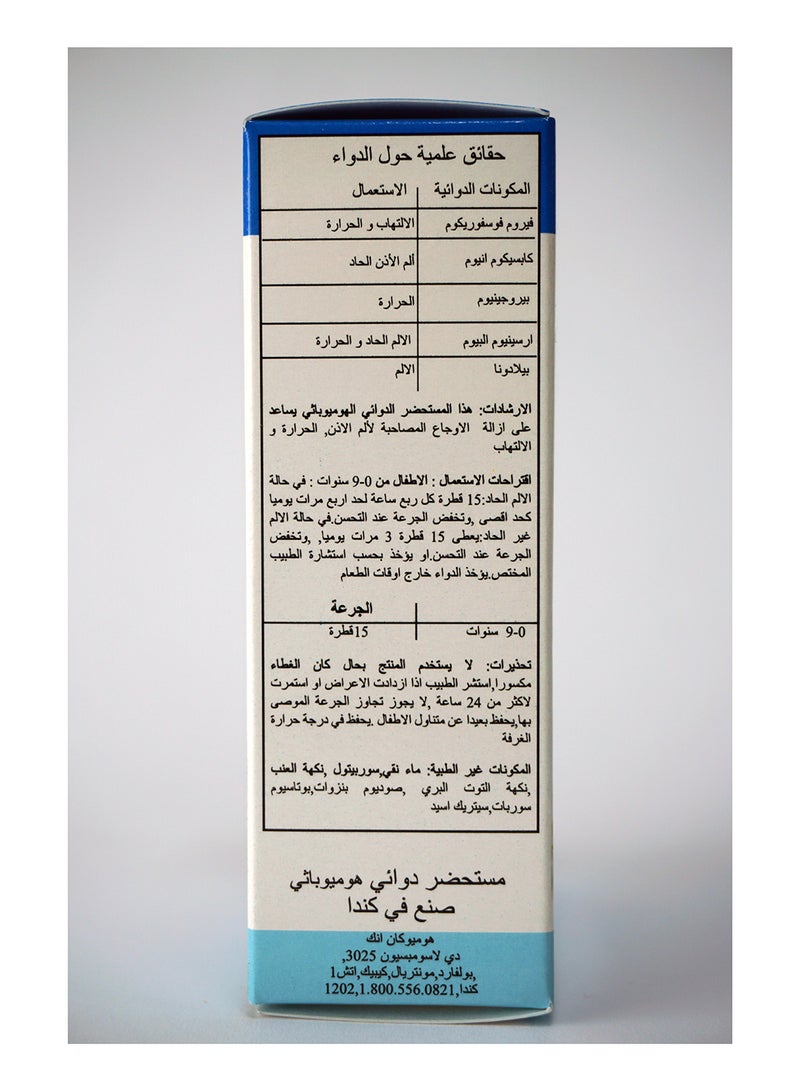 حقائق علمية حول الدواء
المكونات الدوائية الاستعمال
فيروم فوسفوريكوم الالتهاب و الحرارة
كابسيكوم انيوم ألم الأذن الحاد
بيروجينيوم الحرارة
ارسينيوم البيوم الالم الحاد و الحرارة
بيلادونا الالم
الارشادات: هذا المستحضر الدوائي الهوميوباثي يساعد
على ازالة الاوجاع المصاحبة لألم الاذن, الحرارة و
الالتهاب
اقتراحات الاستعمال : الاطفال من 0-9 سنوات : في حالة
الالم الحاد:15 قطرة كل ربع ساعة لحد اربع مرات يوميا
كحد اقصى ,وتخفض الجرعة عند التحسن.في حالة الالم
غير الحاد:يعطى 15 قطرة 3 مرات يوميا, ,وتخفض
الجرعة عند التحسن.او يؤخذ بحسب استشارة الطبيب
المختص.يؤخذ الدواء خارج اوقات الطعام
الجرعة
0-9 سنوات 15قطرة
تحذيرات: لا يستخدم المنتج بحال كان الغطاء
مكسورا,استشر الطبيب اذا ازدادت الاعراض او استمرت
لاكثر من 24 ساعة ,لا يجوز تجاوز الجرعة الموصى
بها,يحفظ بعيدا عن متناول الاطفال .يحفظ في درجة حرارة
الغرفة
المكونات غير الطبية: ماء نقي,سوربيتول ,نكهة العنب
,نكهة التوت البري ,صوديوم بنزوات,بوتاسيوم
سوربات,سيتريك اسيد
مستحضر دوائي هوميوباثي
صنع في كندا
هوميوكان انك
دي لاسومبسيون 3025,
بولفارد,مونتريال,كيبيك,اتش1,
كندا,1202,1.800.556.0821